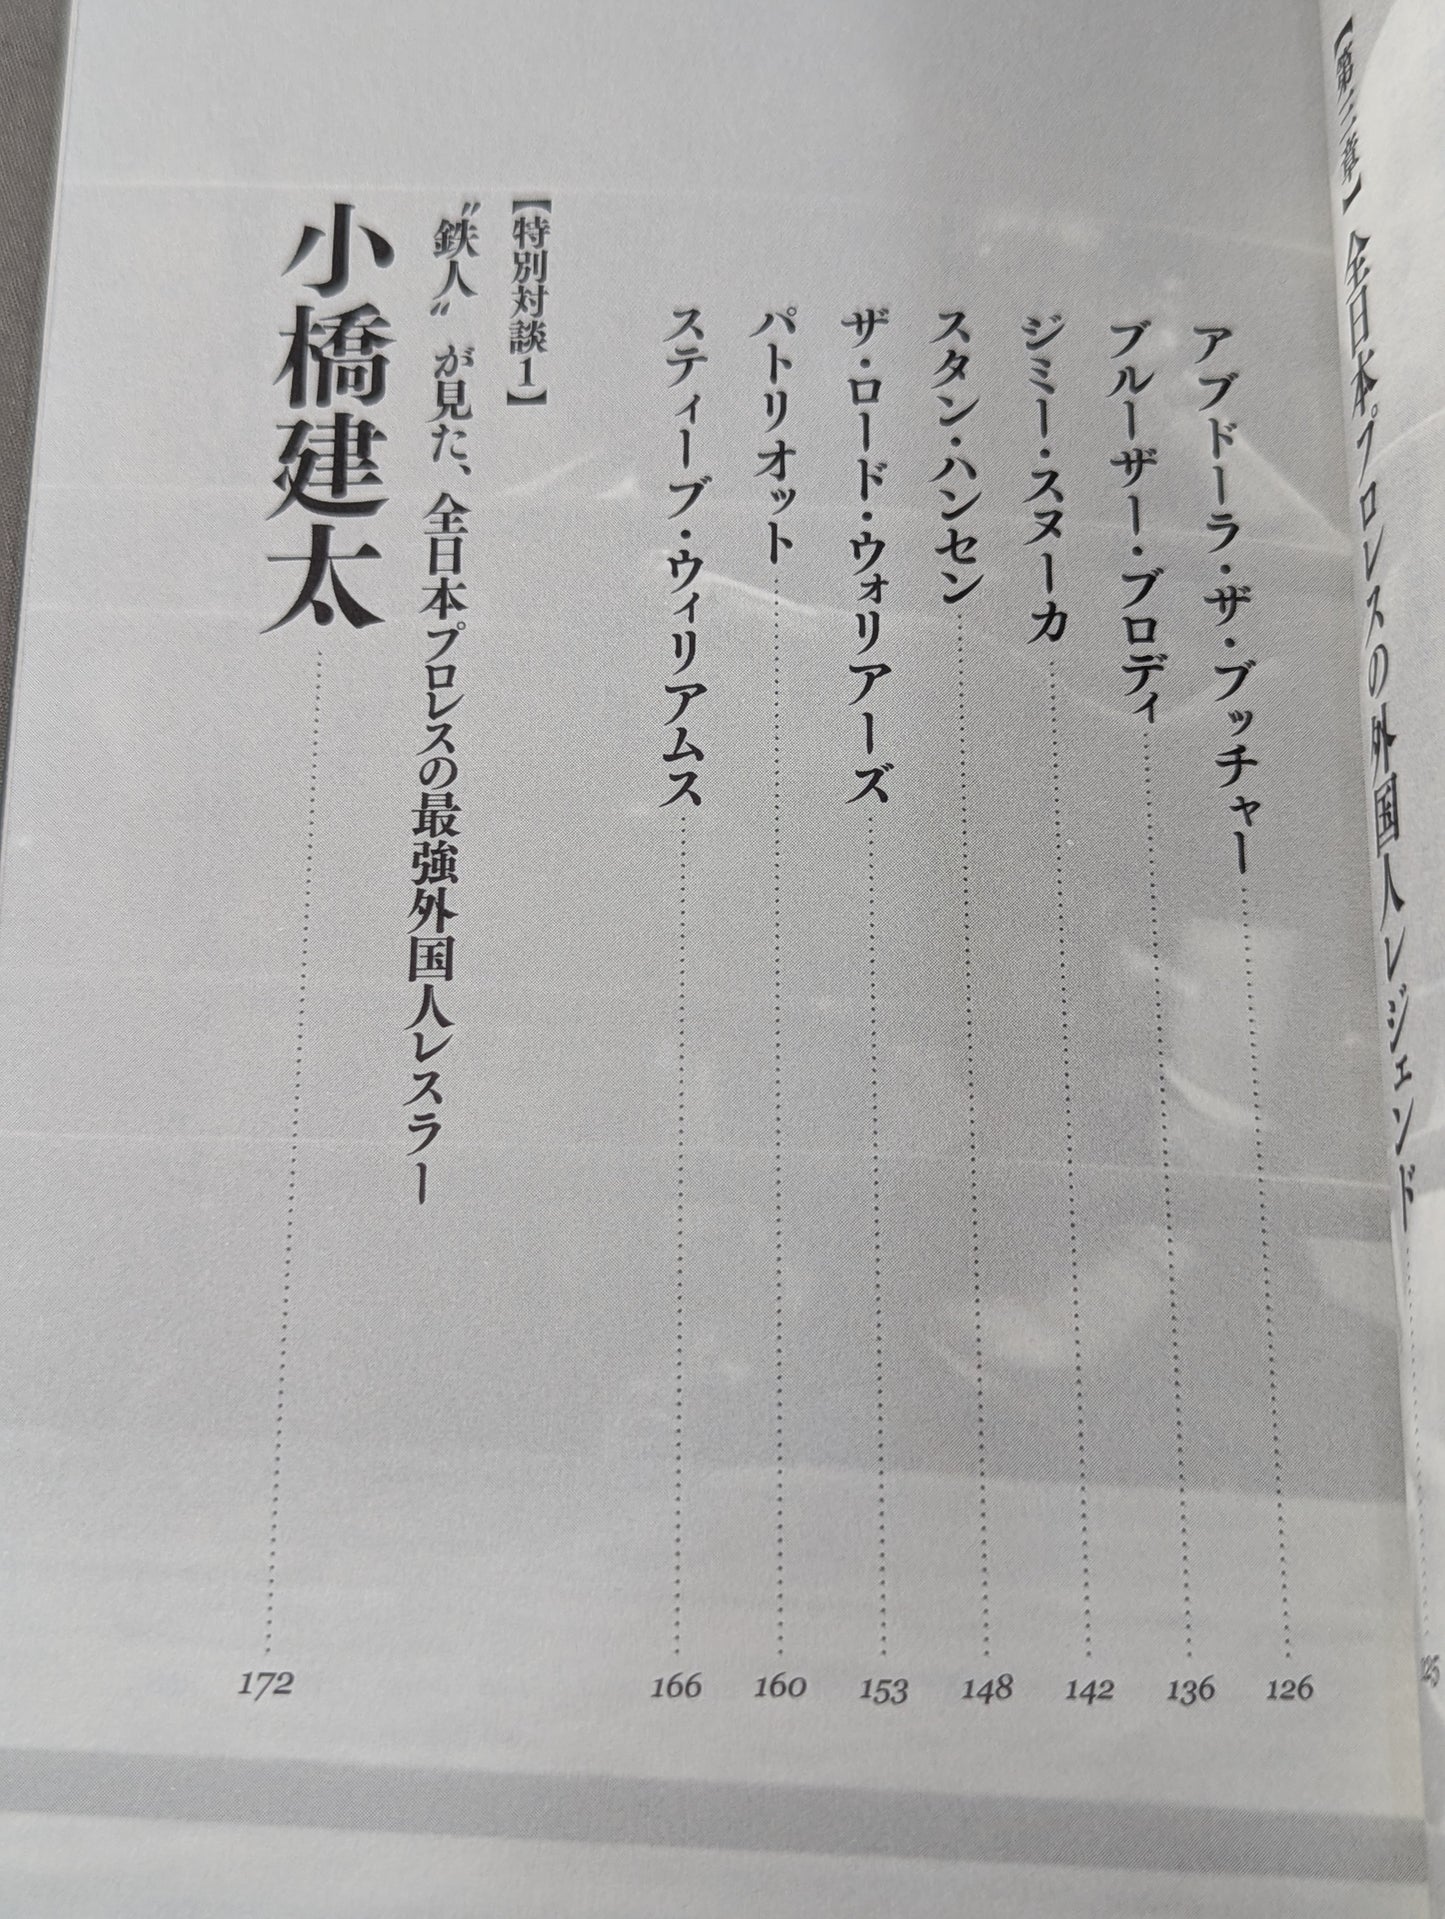 【第三章】全日本プロレスの外国人レジェンド
アブドーラ・ザ・ブッチャー 126
ブルーザー・ブロディ 136
ジミー・スヌーカ 142
スタン・ハンセン 148
ザ・ロード・ウォリアーズ 153
パトリオット 160
スティーブ・ウィリアムス 166
【特別対談1】
〝鉄人〟が見た、全日本プロレスの最強外国人レスラー
小橋建太 172